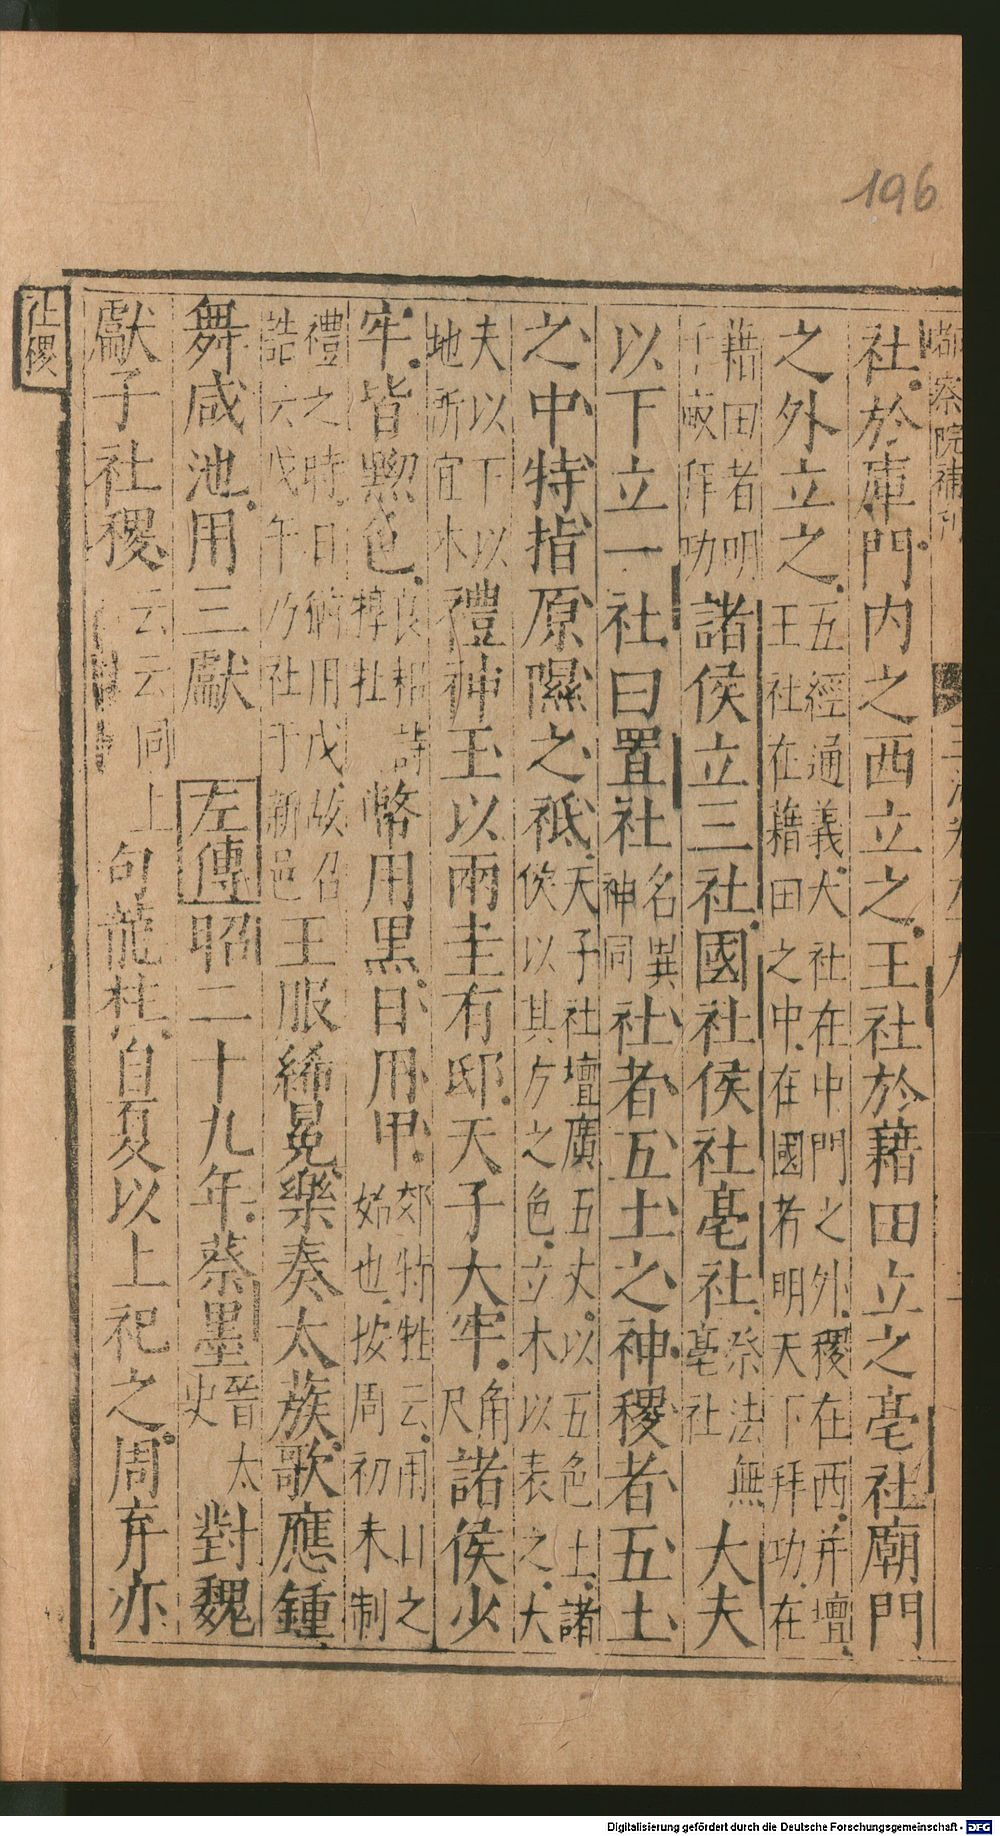 196
都察院補刊
社於庫門内之西立之王社於藉田立之亳社廟門
之外立之五經通義大社在中門之外稷在西并壇
王社在藉田之中在國者明天下拜功在
藉田者明千畝拜功諸侯立三社國社侯社亳社祭法無亳社大夫
以下立一社曰置社名異神同社者五土之神稷者五土
之中特指原隰之祗天子社壇廣五丈以五色土諸
侯以其方之色立木以表之大
夫以下以地所宜木禮神玉以兩圭有邸天子大牢角尺諸侯少
牢皆黝色良耜詩犉牡幣用黑日用甲郊特牲云用日之
始也按周初未制
禮之時日猶用戊故召
誥六戊午乃社于新邑王服絺冕樂奏太蔟歌應鍾
舞咸池用三獻 左傳昭二十九年蔡墨晉太史對魏
獻子社稷云云同上句龍柱自夏以上祀之周弃亦
社稷
Digitalisierung gefördert durch die Deutsche Forschungsgemeinschaft - DFG